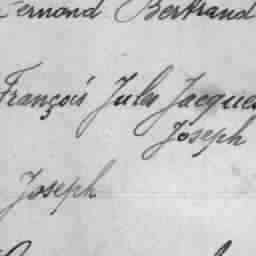 Fernand Bertrand
François Jules Jacques
Joseph
Joseph